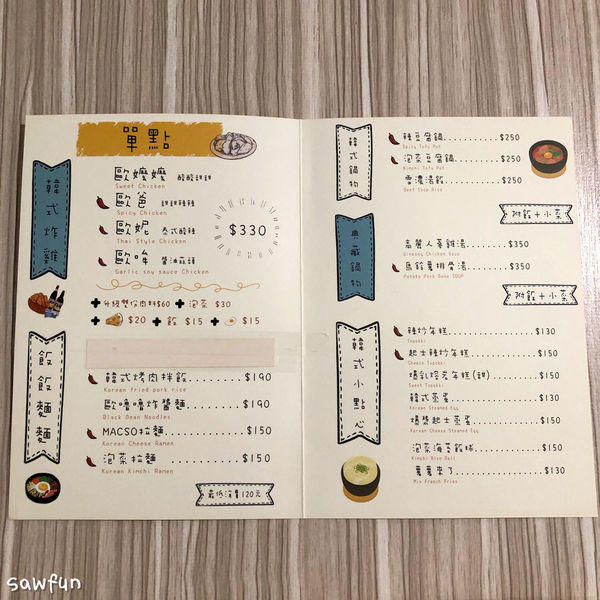 單點
韓式炸雞
歐嬤嬤 酸酸甜甜
Sweet Chicken
歐爸 甜甜辣辣
Spicy Chicken
歐妮 泰式酸辣
Thai Style Chicken
歐哞 醬油蒜頭
Garlic soy sauce Chicken
$330
+升級雙份肉料$60 +泡菜 $30
+ $20 +飯 $15 + $15
飯飯麵麵
韓式烤肉拌飯........$190
Korean fried pork rice
歐嚕嚕炸醬麵........$190
Black Bean Noodles
MACSO拉麵........$150
Korean Cheese Ramen
泡菜拉麵........$150
Korean Kimshi Ramen
最低消費120元
韓式鍋物
辣豆腐鍋........$250
Spicy Tofu Pot
泡菜豆腐鍋........$250
Kimchi Tofu Pot
雪濃湯飯........$250
Beef Soup Rice
附飯+小菜
典藏鍋物
高麗人蔘雞湯........$350
Ginseng Chicken Soup
馬鈴薯排骨湯........$350
Potato Pork Bone SOUP
附飯+小菜
韓式小點心
辣炒年糕........$130
Topokki
起士辣炒年糕........$150
Cheese Topokki
爆乳焙茗年糕(甜)........$150
Sweet Topokki
韓式蒸蛋........$130
Korean Steamed Egg
爆漿起士蒸蛋........$150
Korean Cheese Steamed Egg
泡菜海苔飯球........$150
Kimchi Rice Ball
薯薯來了........$130
Mix French Fries
sawfun